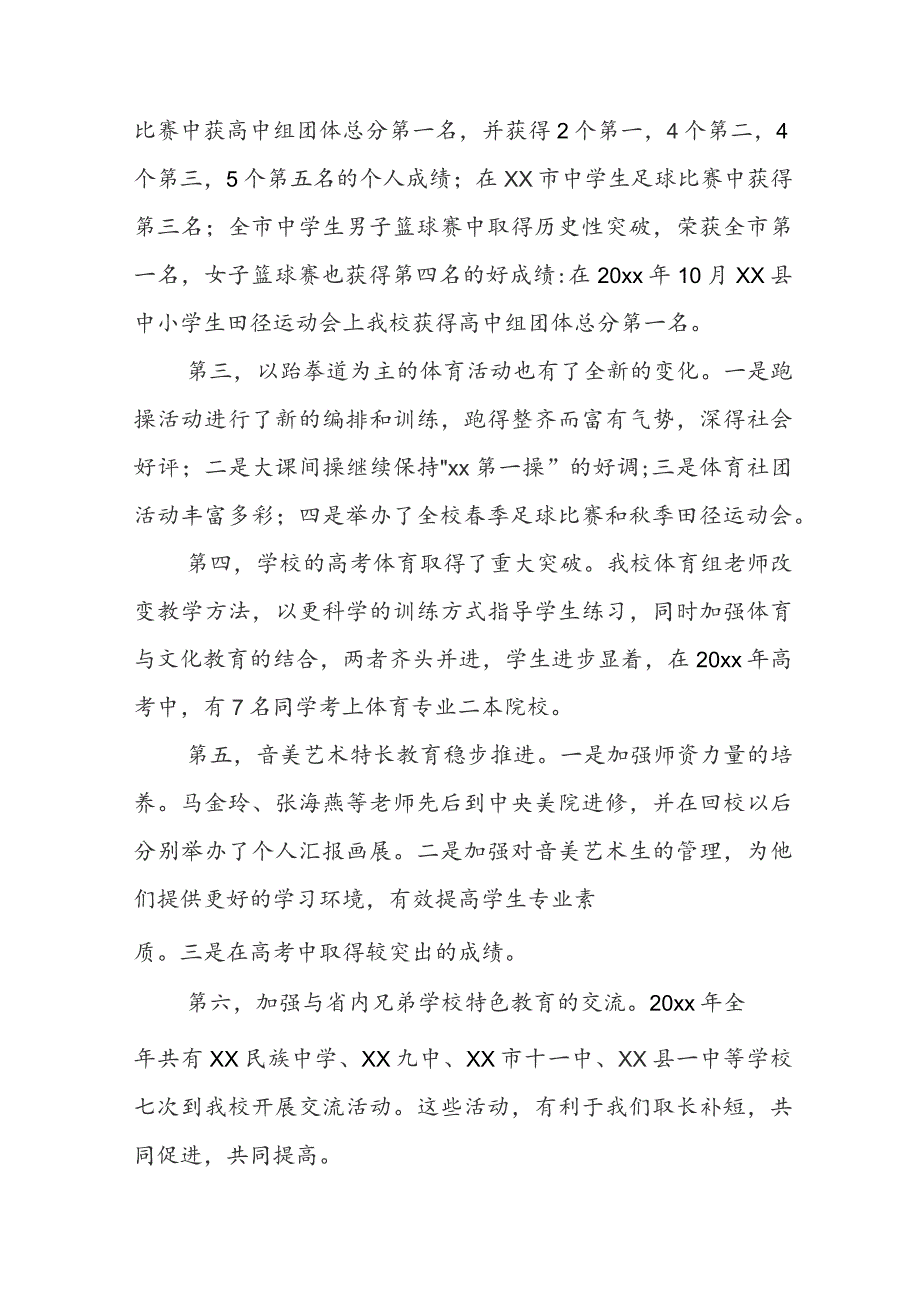 比赛中获高中组团体总分第一名，并获得2个第一，4个第二，4
个第三，5个第五名的个人成绩；在XX市中学生足球比赛中获得
第三名；全市中学生男子篮球赛中取得历史性突破，荣获全市第
一名，女子篮球赛也获得第四名的好成绩:在20xx年10月XX县
中小学生田径运动会上我校获得高中组团体总分第一名。
第三，以跆拳道为主的体育活动也有了全新的变化。一是跑
操活动进行了新的编排和训练，跑得整齐而富有气势，深得社会
好评；二是大课间操继续保持"xx第一操”的好调;三是体育社团
活动丰富多彩；四是举办了全校春季足球比赛和秋季田径运动会。
第四，学校的高考体育取得了重大突破。我校体育组老师改
变教学方法，以更科学的训练方式指导学生练习，同时加强体育
与文化教育的结合，两者齐头并进，学生进步显着，在20xx年高
考中，有7名同学考上体育专业二本院校。
第五，音美艺术特长教育稳步推进。一是加强师资力量的培
养。马金玲、张海燕等老师先后到中央美院进修，并在回校以后
分别举办了个人汇报画展。二是加强对音美艺术生的管理，为他
们提供更好的学习环境，有效提高学生专业素
质。三是在高考中取得较突出的成绩。
第六，加强与省内兄弟学校特色教育的交流。20xx年全
年共有XX民族中学、XX九中、XX市十一中、XX县一中等学校
七次到我校开展交流活动。这些活动，有利于我们取长补短，共
同促进，共同提高。